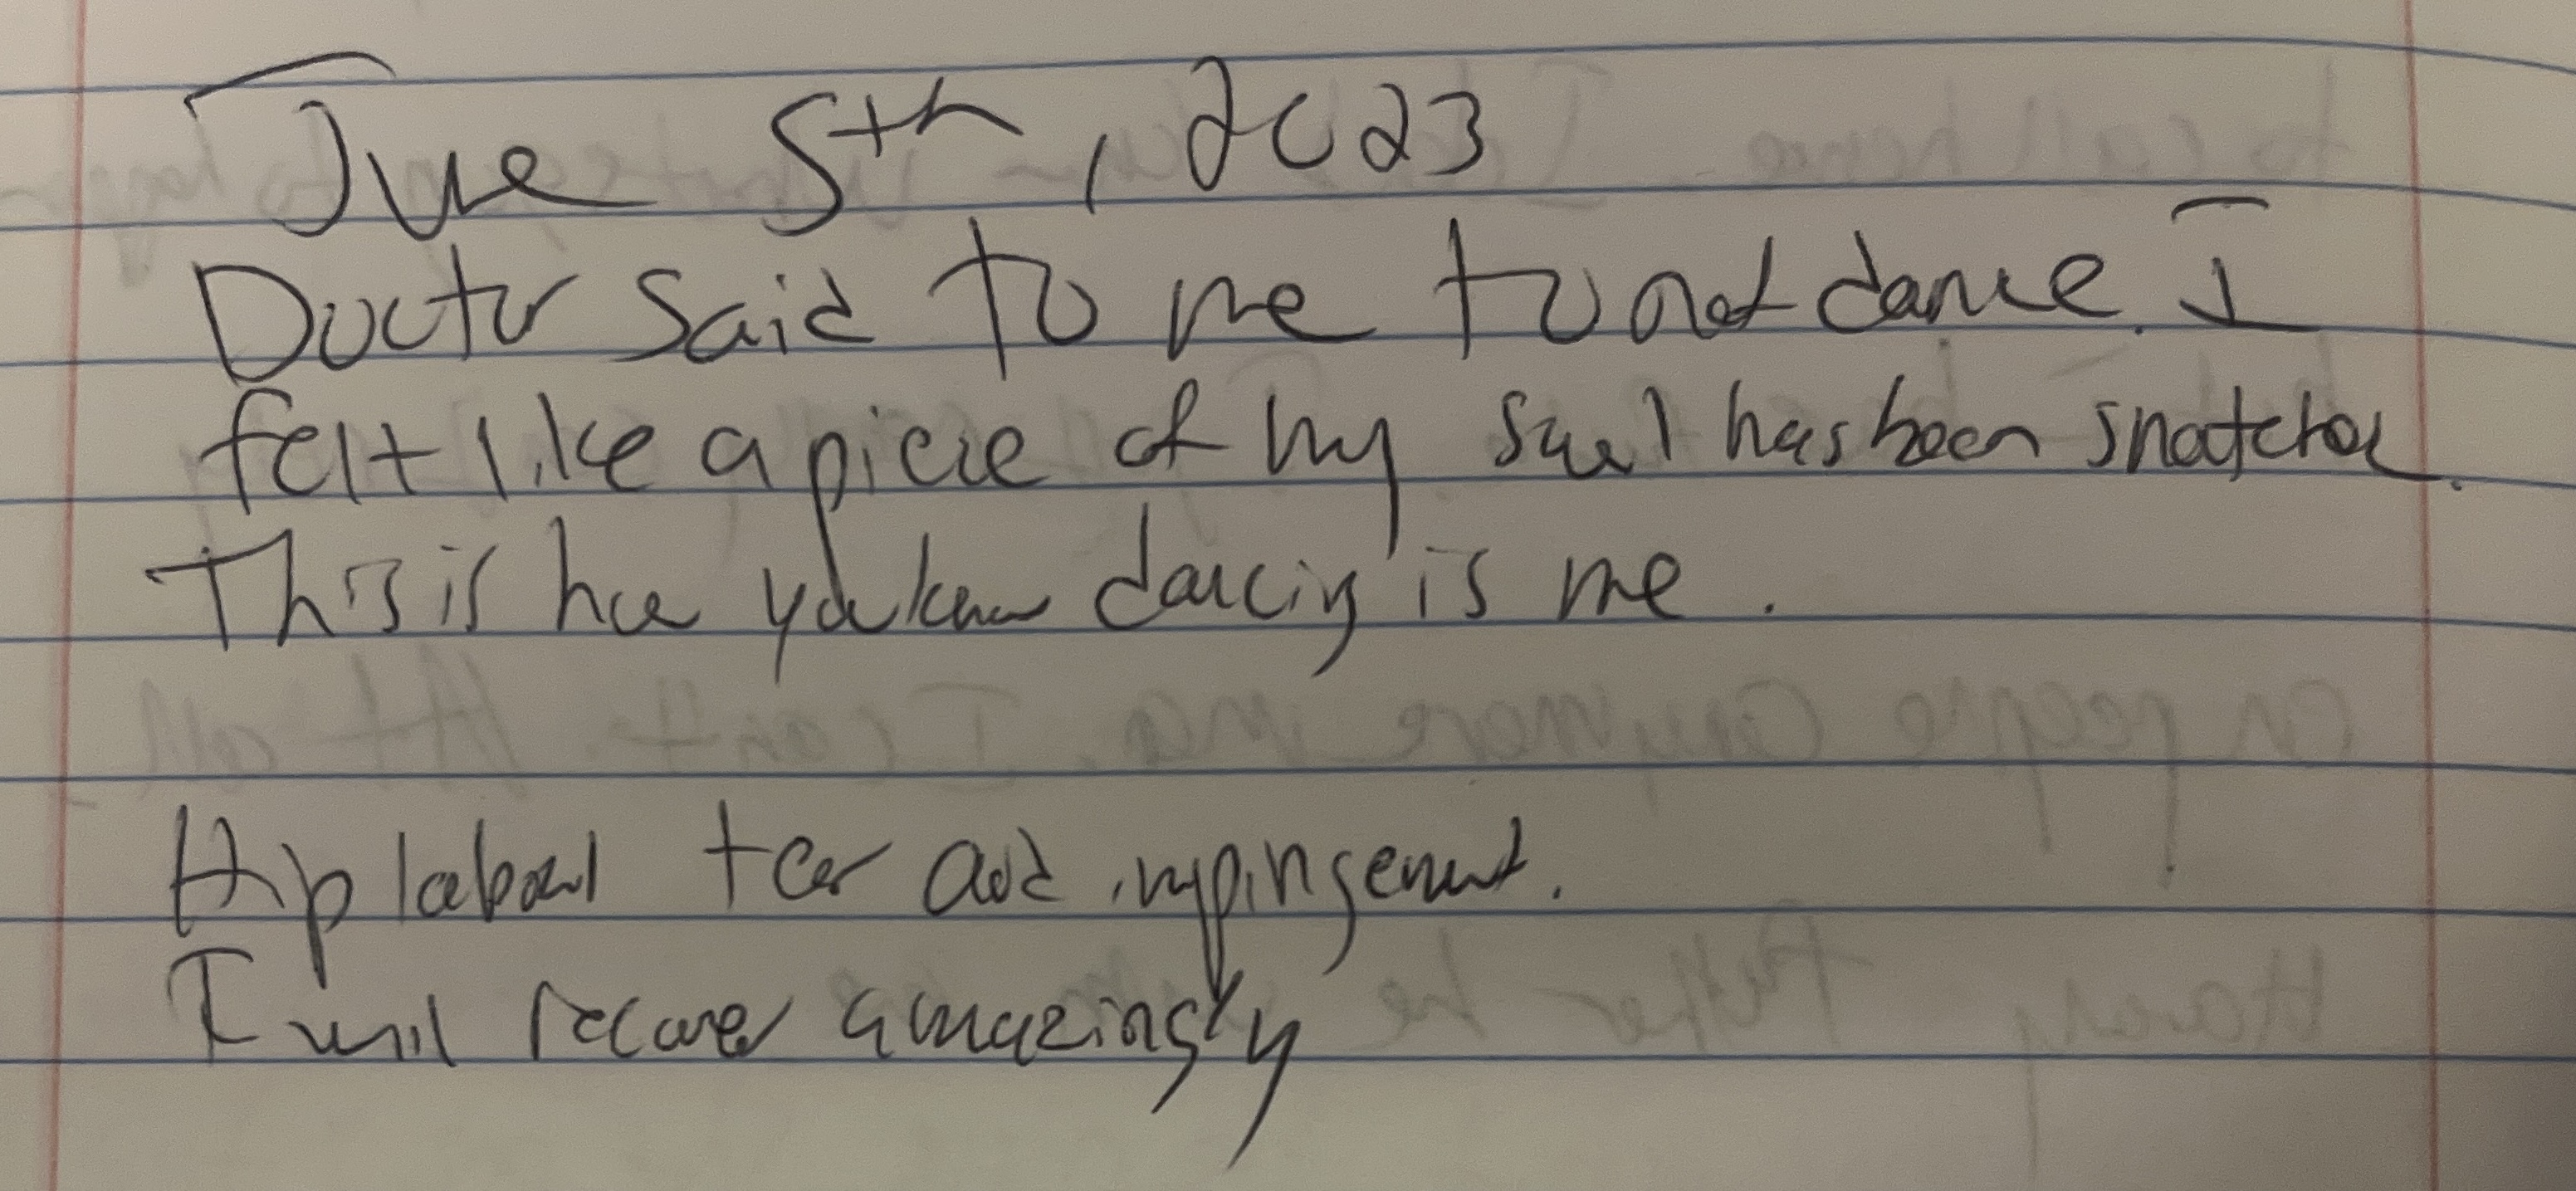 June 5th, 2023
Doctor said to me to not dance. I
felt like a piece of my soul has been snatched.
This is how you know dancing is me.
Hip labral tear and impingement.
I will recover amazingly